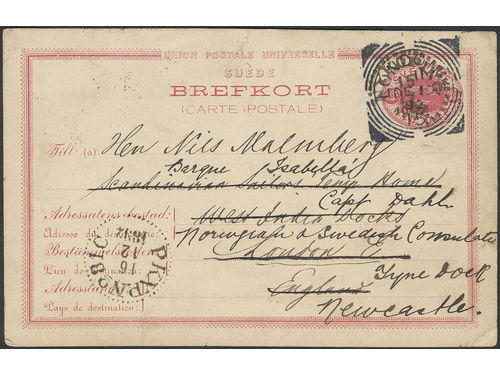 UNION POSTALE UNIVERSELLE
SUÈDE
BREFKORT
(CARTE POSTALE)
LONDON
Till (à) Herr Nils Malmberg
Barque Isabella
Scandinavian Sailors Temp Home
Capt Dahl
Adressatens bostad:
West India Docks
Adresse du destinataire:
Norwegian & Swedish Consulate
Bestämmelseorten:
London E
Lieu de destination:
Tyne Dock
Adressland:
England
Pays de destination:
Newcastle.
PKXP. No 81 C